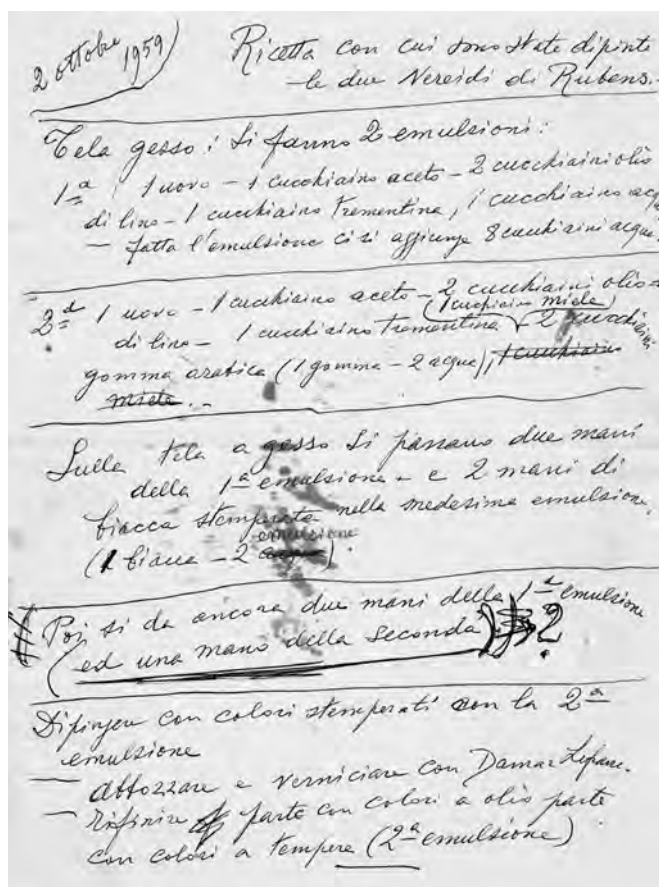 2 ottobre 1959)
Ricetta con cui sono state dipinte
le due Nereidi di Rubens.
Tela gesso: Si fanno 2 emulsioni:
1ª; 1 uovo - 1 cucchiaino aceto - 2 cucchiaini olio
di lino - 1 cucchiaino trementina, 1 cucchiaino acq
— fatta l'emulsione ci si aggiunge 8 cucchiaini acqua.
2ª 1 uovo - 1 cucchiaino aceto - 2 cucchiaini olio
(1 cucchiaino miele)
di lino - 1 cucchiaino trementina 2 cucchiaini
gomma arabica (1 gomma - 2 acqua), 1 cucchiaino
miele. -
Sulla tela a gesso si passano due mani
della 1ª emulsione - e 2 mani di
biacca stemperata nella medesima emulsione.
emulsione
(1 biacca - 2 acqua).
Poi si da ancora due mani della 1ª emulsione
(ed una mano della seconda) ?
Dipingere con colori stemperati con la 2ª
emulsione
— abbozzare e verniciare con Damar Lefranc.
— rifinire parte con colori a olio parte
con colori a tempera (2ª emulsione)